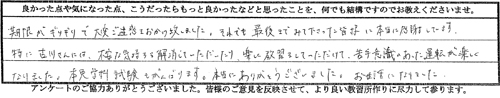 良かった点や気になった点、こうだったらもっと良かったなどと思ったことを、何でも結構ですのでお教えくださいませ。
期限がギリギリで大変ご迷惑をおかけ致しました。それでも最後までみて下さった皆様に本当に感謝してます。
特に古川さんには、不安な気持ちを解消していただいたり、楽しい教習をしていただけて、苦手意識のあった運転が楽しく
なりました。本免学科試験もがんばります。本当にありがとうございました。お世話になりました。
アンケートのご協力ありがとうございました。皆様のご意見を反映させて、より良い教習所作りに尽力して参ります。